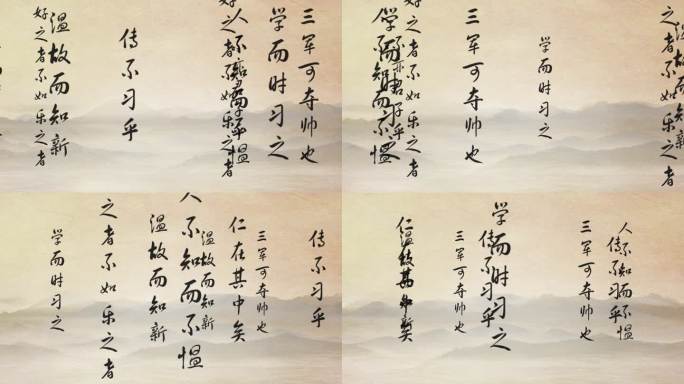 三军可夺帅也
学而时习之
好之者不如乐之者
传不习乎
温故而知新
好之者不如乐之者
之者不如乐之者
学而时习之
三军可夺帅也
之者不如乐之者
传不习乎
三军可夺帅也
仁在其中矣
温故而知新
人不知而不愠
温故而知新
之者不如乐之者
学而时习之
人不知而不愠
传不习乎
三军可夺帅也
学而时习之
传不习乎
三军可夺帅也